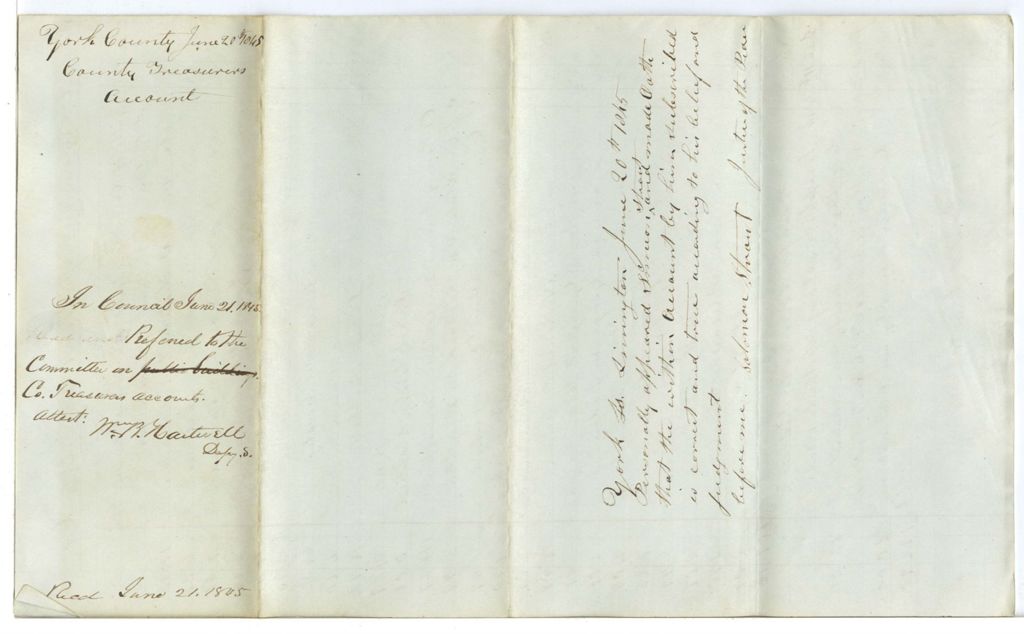 York County June 20th 1845
County Treasurers
Account
In Council June 21. 1845.
Read and Referred to the
Committee on public buildings.
Co. Treasurers accounts.
Attest:
Wm B. Hartwell
Depy. S.
Recd June 21. 1845
York Ss. Livington June 20th 1845
Personally appeared Simeon and made Oath
that the within Account by him subscribed
is correct and true according to his belief and
judgment
before me. Solomon Strout Justice of the Peace